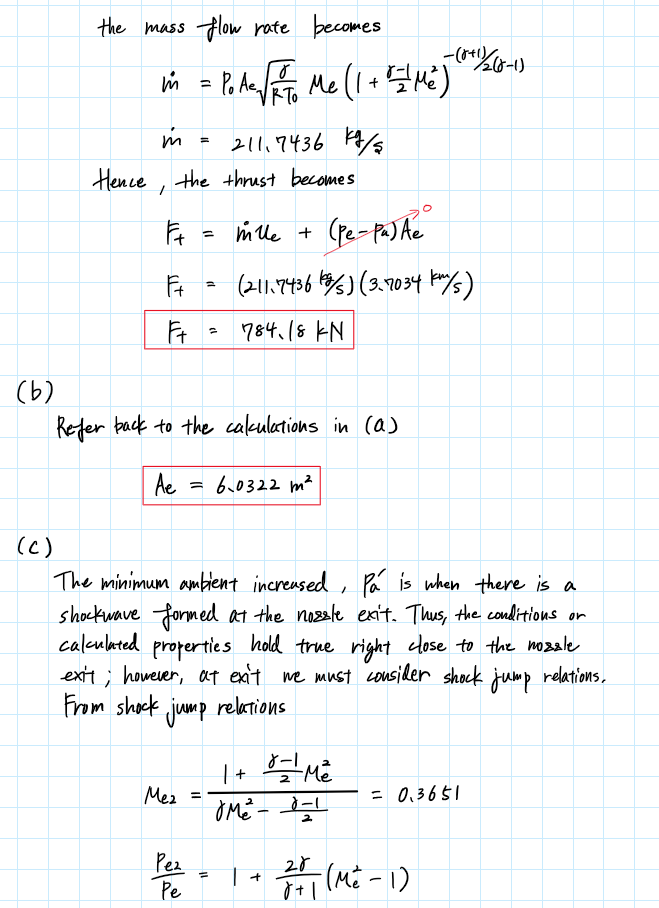 the mass flow rate becomes
ṁ = P₀ Ae √(γ/(RT₀)) Me (1 + (γ-1)/2 Me²)^(-(γ+1)/2(γ-1))
ṁ = 211.7436 kg/s
Hence, the thrust becomes
F_t = ṁ ue + (pe-pa) Ae 0
F_t = (211.7436 kg/s)(3.7034 km/s)
F_t = 784.18 kN
(b)
Refer back to the calculations in (a)
Ae = 6.0322 m²
(c)
The minimum ambient increased, Pa' is when there is a
shockwave formed at the nozzle exit. Thus, the conditions or
calculated properties hold true right close to the nozzle
exit; however, at exit we must consider shock jump relations.
From shock jump relations
Me2 = (1 + (γ-1)/2 Me²)/(γMe² - (γ-1)/2) = 0.3651
Pe2/Pe = 1 + 2γ/(γ+1) (Me² - 1)